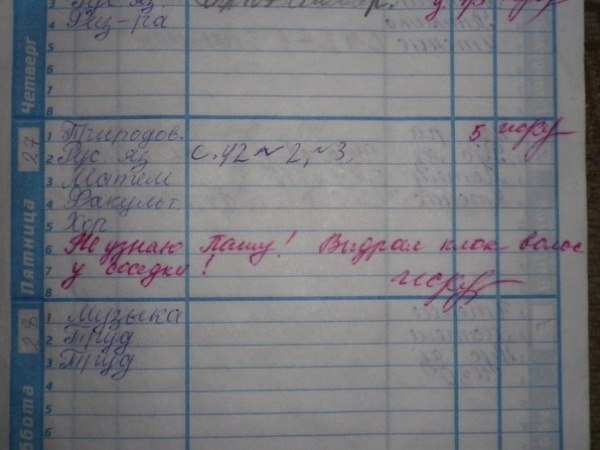 3 Рус яз.
4 Физ-ра
5
6
7
8
Четверг
27
Пятница
1 Природов. 5
2 Рус яз с. 42 № 2, № 3.
3 Матем
4 Факульт
5 Хор
6 Не узнаю Пашу! Выдрал клок волос
7 у соседки!
8
28
суббота
1 Музыка
2 Труд
3 Труд
4
5
6